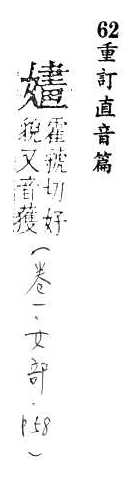 62重訂直音篇
嫿
霍虢切好
貌又音獲
(卷一·女部·p58)